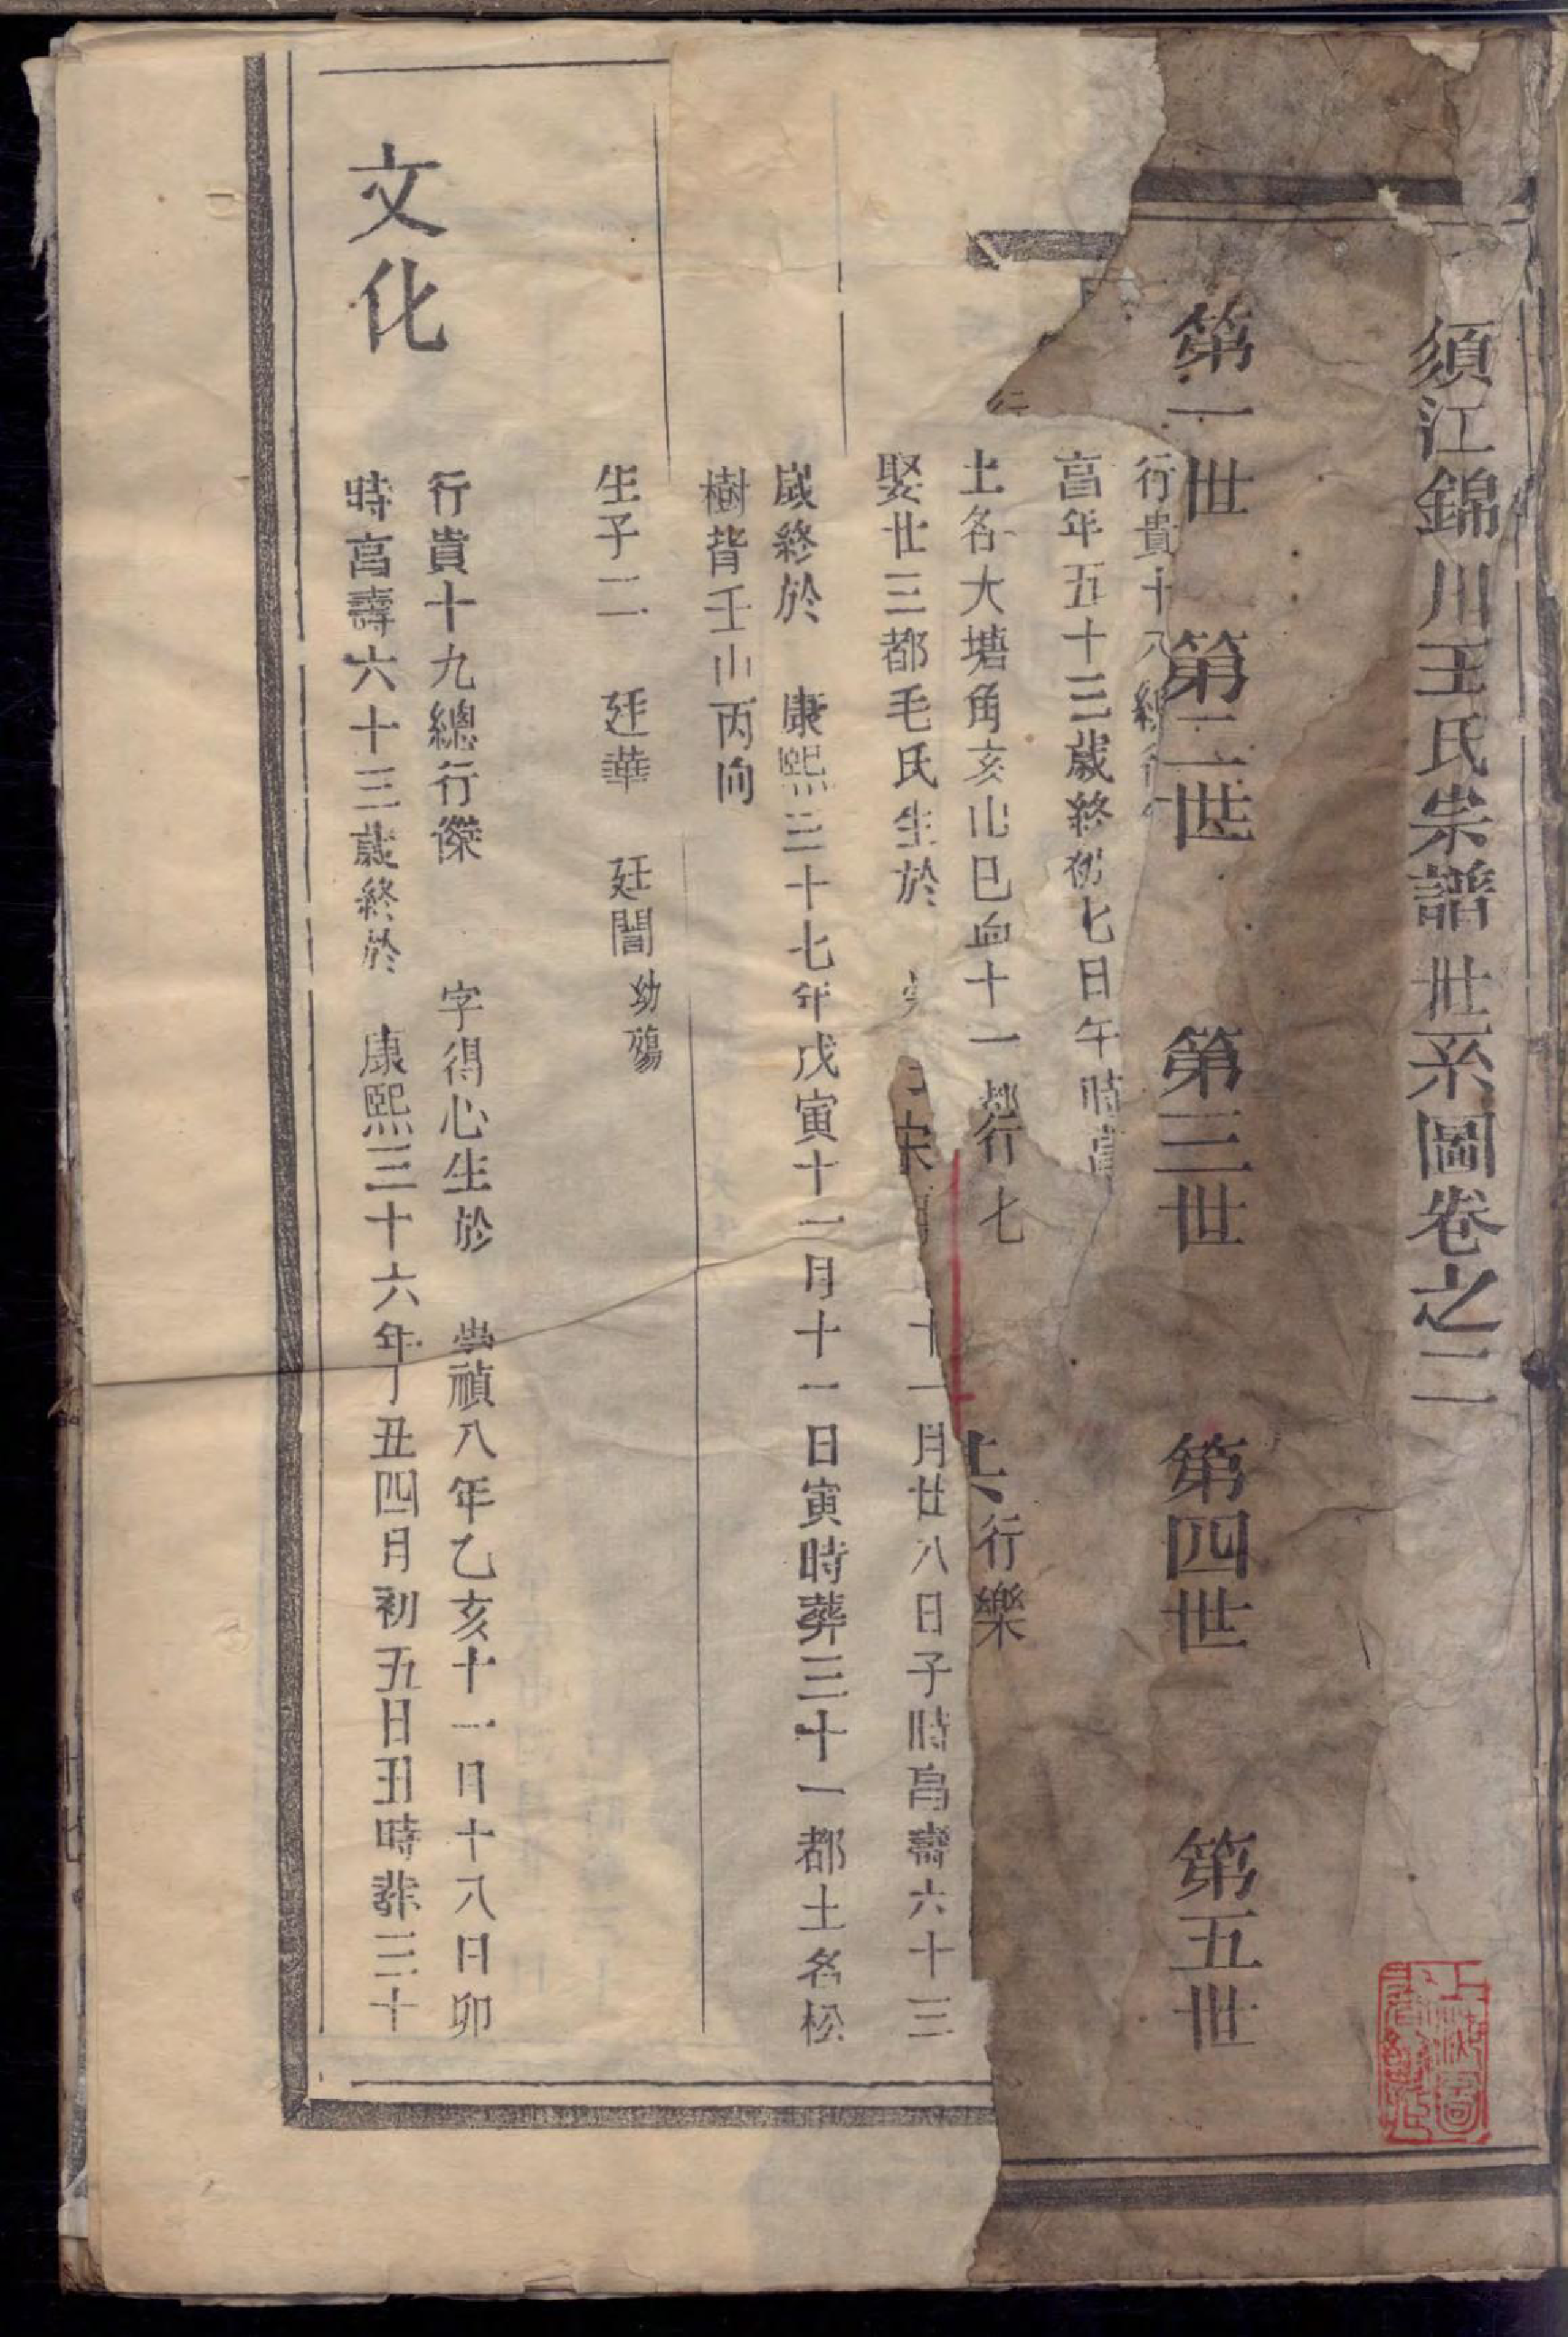 須江錦川王氏宗譜世系圖卷之二
第一世 第二世 第三世 第四世 第五世
行貴十八總行
亯年五十三歲終初七日午時亯
土名大塘角亥山巳向十一都
行七
行樂
娶廿三都毛氏生於
十一月廿八日子時亯壽六十三
歲終於 康熙三十七年戊寅十一月十一日寅時葬三十一都土名松
樹背壬山丙向
生子二 廷華 廷誾幼殤
文化
行貴十九總行傑 字得心生於 崇禎八年乙亥十一月十八日卯
時亯壽六十三歲終於 康熙三十六年丁丑四月初五日丑時葬三十